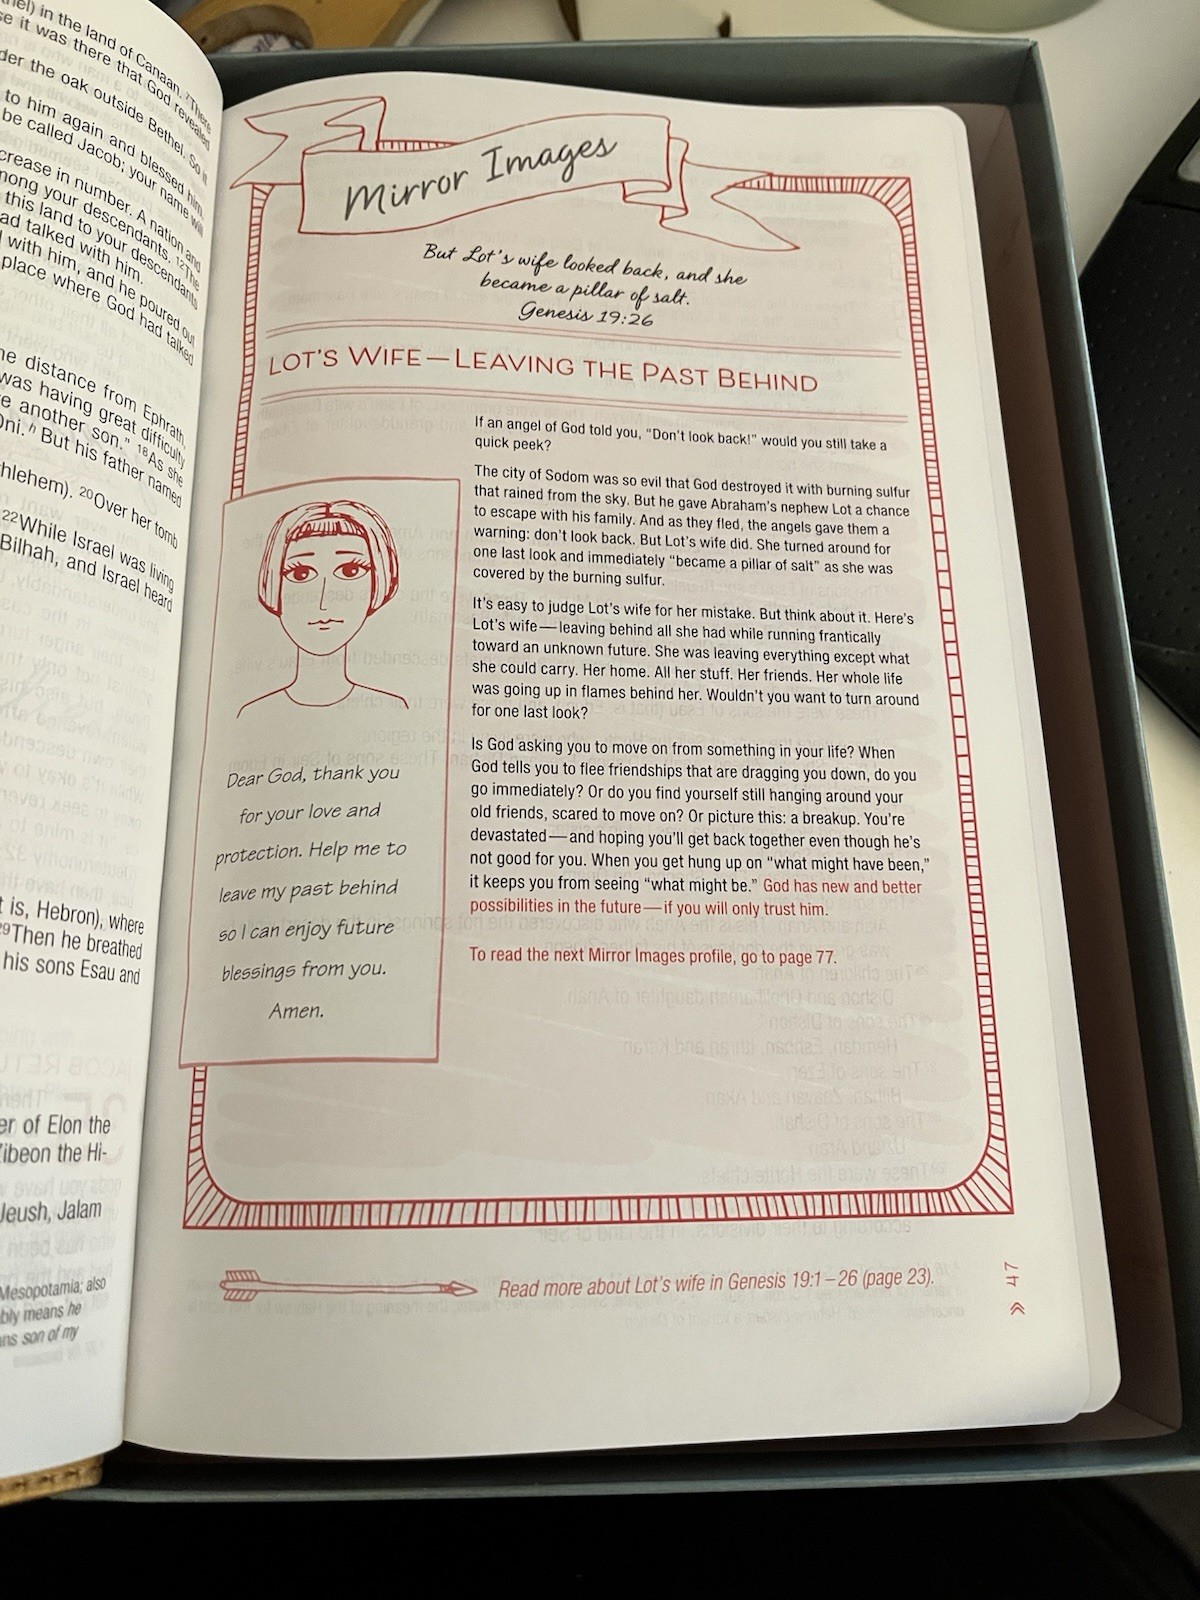 nel) in the land of Canaan. 7There
se it was there that God revealed
der the oak outside Bethel. So it
to him again and blessed him.
be called Jacob; your name will
crease in number. A nation and
mong your descendants.
this land to your descendants
ad talked with him.
12The
with him, and he poured out
place where God had talked
ne distance from Ephrath,
was having great difficulty
e another son." 18As she
Oni. But his father named
hlehem). 20Over her tomb
22While Israel was living
Bilhah, and Israel heard
t is, Hebron), where
29Then he breathed
his sons Esau and
er of Elon the
ibeon the Hi-
Jeush, Jalam
Mesopotamia; also
bly means he
ns son of my
Mirror Images
But Lot's wife looked back, and she
became a pillar of salt.
Genesis 19:26
LOT'S WIFE—LEAVING THE PAST BEHIND
If an angel of God told you, "Don't look back!" would you still take a
quick peek?
The city of Sodom was so evil that God destroyed it with burning sulfur
that rained from the sky. But he gave Abraham's nephew Lot a chance
to escape with his family. And as they fled, the angels gave them a
warning: don't look back. But Lot's wife did. She turned around for
one last look and immediately "became a pillar of salt" as she was
covered by the burning sulfur.
It's easy to judge Lot's wife for her mistake. But think about it. Here's
Lot's wife—leaving behind all she had while running frantically
toward an unknown future. She was leaving everything except what
she could carry. Her home. All her stuff. Her friends. Her whole life
was going up in flames behind her. Wouldn't you want to turn around
for one last look?
Is God asking you to move on from something in your life? When
God tells you to flee friendships that are dragging you down, do you
go immediately? Or do you find yourself still hanging around your
old friends, scared to move on? Or picture this: a breakup. You're
devastated—and hoping you'll get back together even though he's
not good for you. When you get hung up on "what might have been,"
it keeps you from seeing "what might be." God has new and better
possibilities in the future—if you will only trust him.
To read the next Mirror Images profile, go to page 77.
Dear God, thank you
for your love and
protection. Help me to
leave my past behind
so I can enjoy future
blessings from you.
Amen.
Read more about Lot's wife in Genesis 19:1–26 (page 23).
47